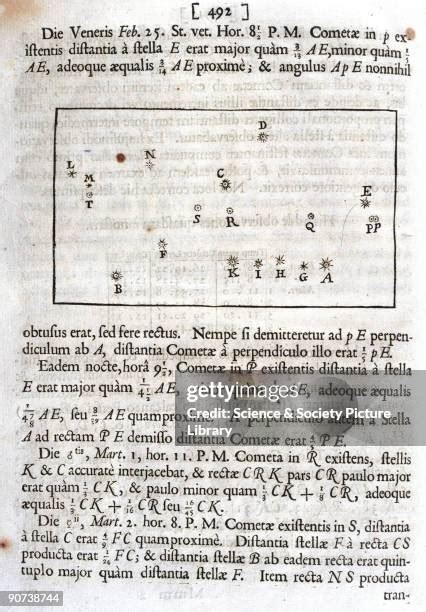 [ 492 ]
Die Veneris Feb. 25. St. vet. Hor. 8½ P. M. Cometæ in p ex-
istentis distantia à stella E erat major quàm 3/13 AE, minor quàm 1/5
AE, adeoque æqualis 3/14 AE proximè; & angulus ApE nonnihil
D
L
N
M
C
T
E
S
R
Q
PP
F
K
I
H
G
A
B
obtusus erat, sed fere rectus. Nempe si demitteretur ad pE perpen-
diculum ab A, distantia Cometæ à perpendiculo illo erat 1/5 pE.
Eadem nocte, horâ 9½, Cometæ in P existentis distantia à stella
E erat major quàm AE, E, adeoque æqualis
AE, seu 8/39 AE quamproximè. perpendiculo autem à Stella
A ad rectam PE demisso distantia Cometæ erat 4/5 PE.
Die ♂tis, Mart. 1, hor. 11. P. M. Cometa in R existens, stellis
K & C accuratè interjacebat, & rectæ CRK pars CR paulo major
erat quàm 1/3 CK, & paulo minor quam 1/3 CK + 1/8 CR, adeoque
æqualis 1/3 CK + 1/16 CR seu 16/45 CK.
Die ☿ii, Mart. 2. hor. 8. P. M. Cometæ existentis in S, distantia
à stella C erat 4/9 FC quamproximè. Distantia stellæ F à recta CS
producta erat 1/24 FC; & distantia stellæ B ab eadem recta erat quin-
tuplo major quàm distantia stellæ F. Item recta NS producta
tran-
gettyimages
Science & Society Picture
Library
90738744